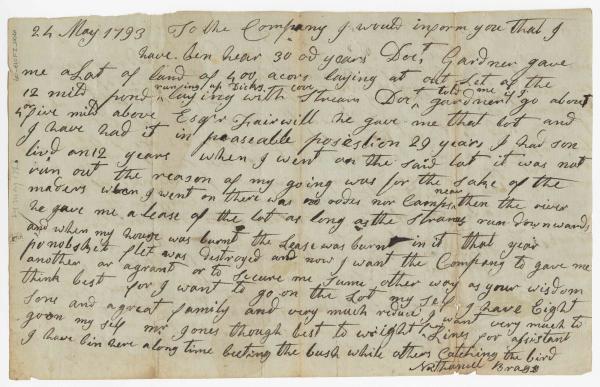 24 May 1793 To the Company I would inform you that I
have ben hear 30 od years Doct. Gardner gave
me a Lot of land of 400 acors laying at out Let of the
12 mild pond laying with Stream Doct gardner go about
runing up Dicks cove told me if I
4 or five mild above Esqr Fairwill he gave me that lot and
I have had it in peaseable posesion 29 years I had son
livd on 12 years when I went on the said lot it was not
run out the reason of my going was for the sake of the
maders when I went on there was no rodes nor Camps then the river
near
he gave me a lease of the lot as long as the Streams run downwards
and when my house was burnt the Lease was burnt in it that year
ponobskit flet was destroyed and now I want the Company to gave me
another or a grant or to secure me sume other way as your wisdom
think best for I want to go on the Lot my self I have Eight
sons and a great family and very much reduce I want very much to
go on my self mr Jones though best to wright Lines for assistant
I have bin here along time beeting the bush while others Catching the bird
Nathaniel Bragg